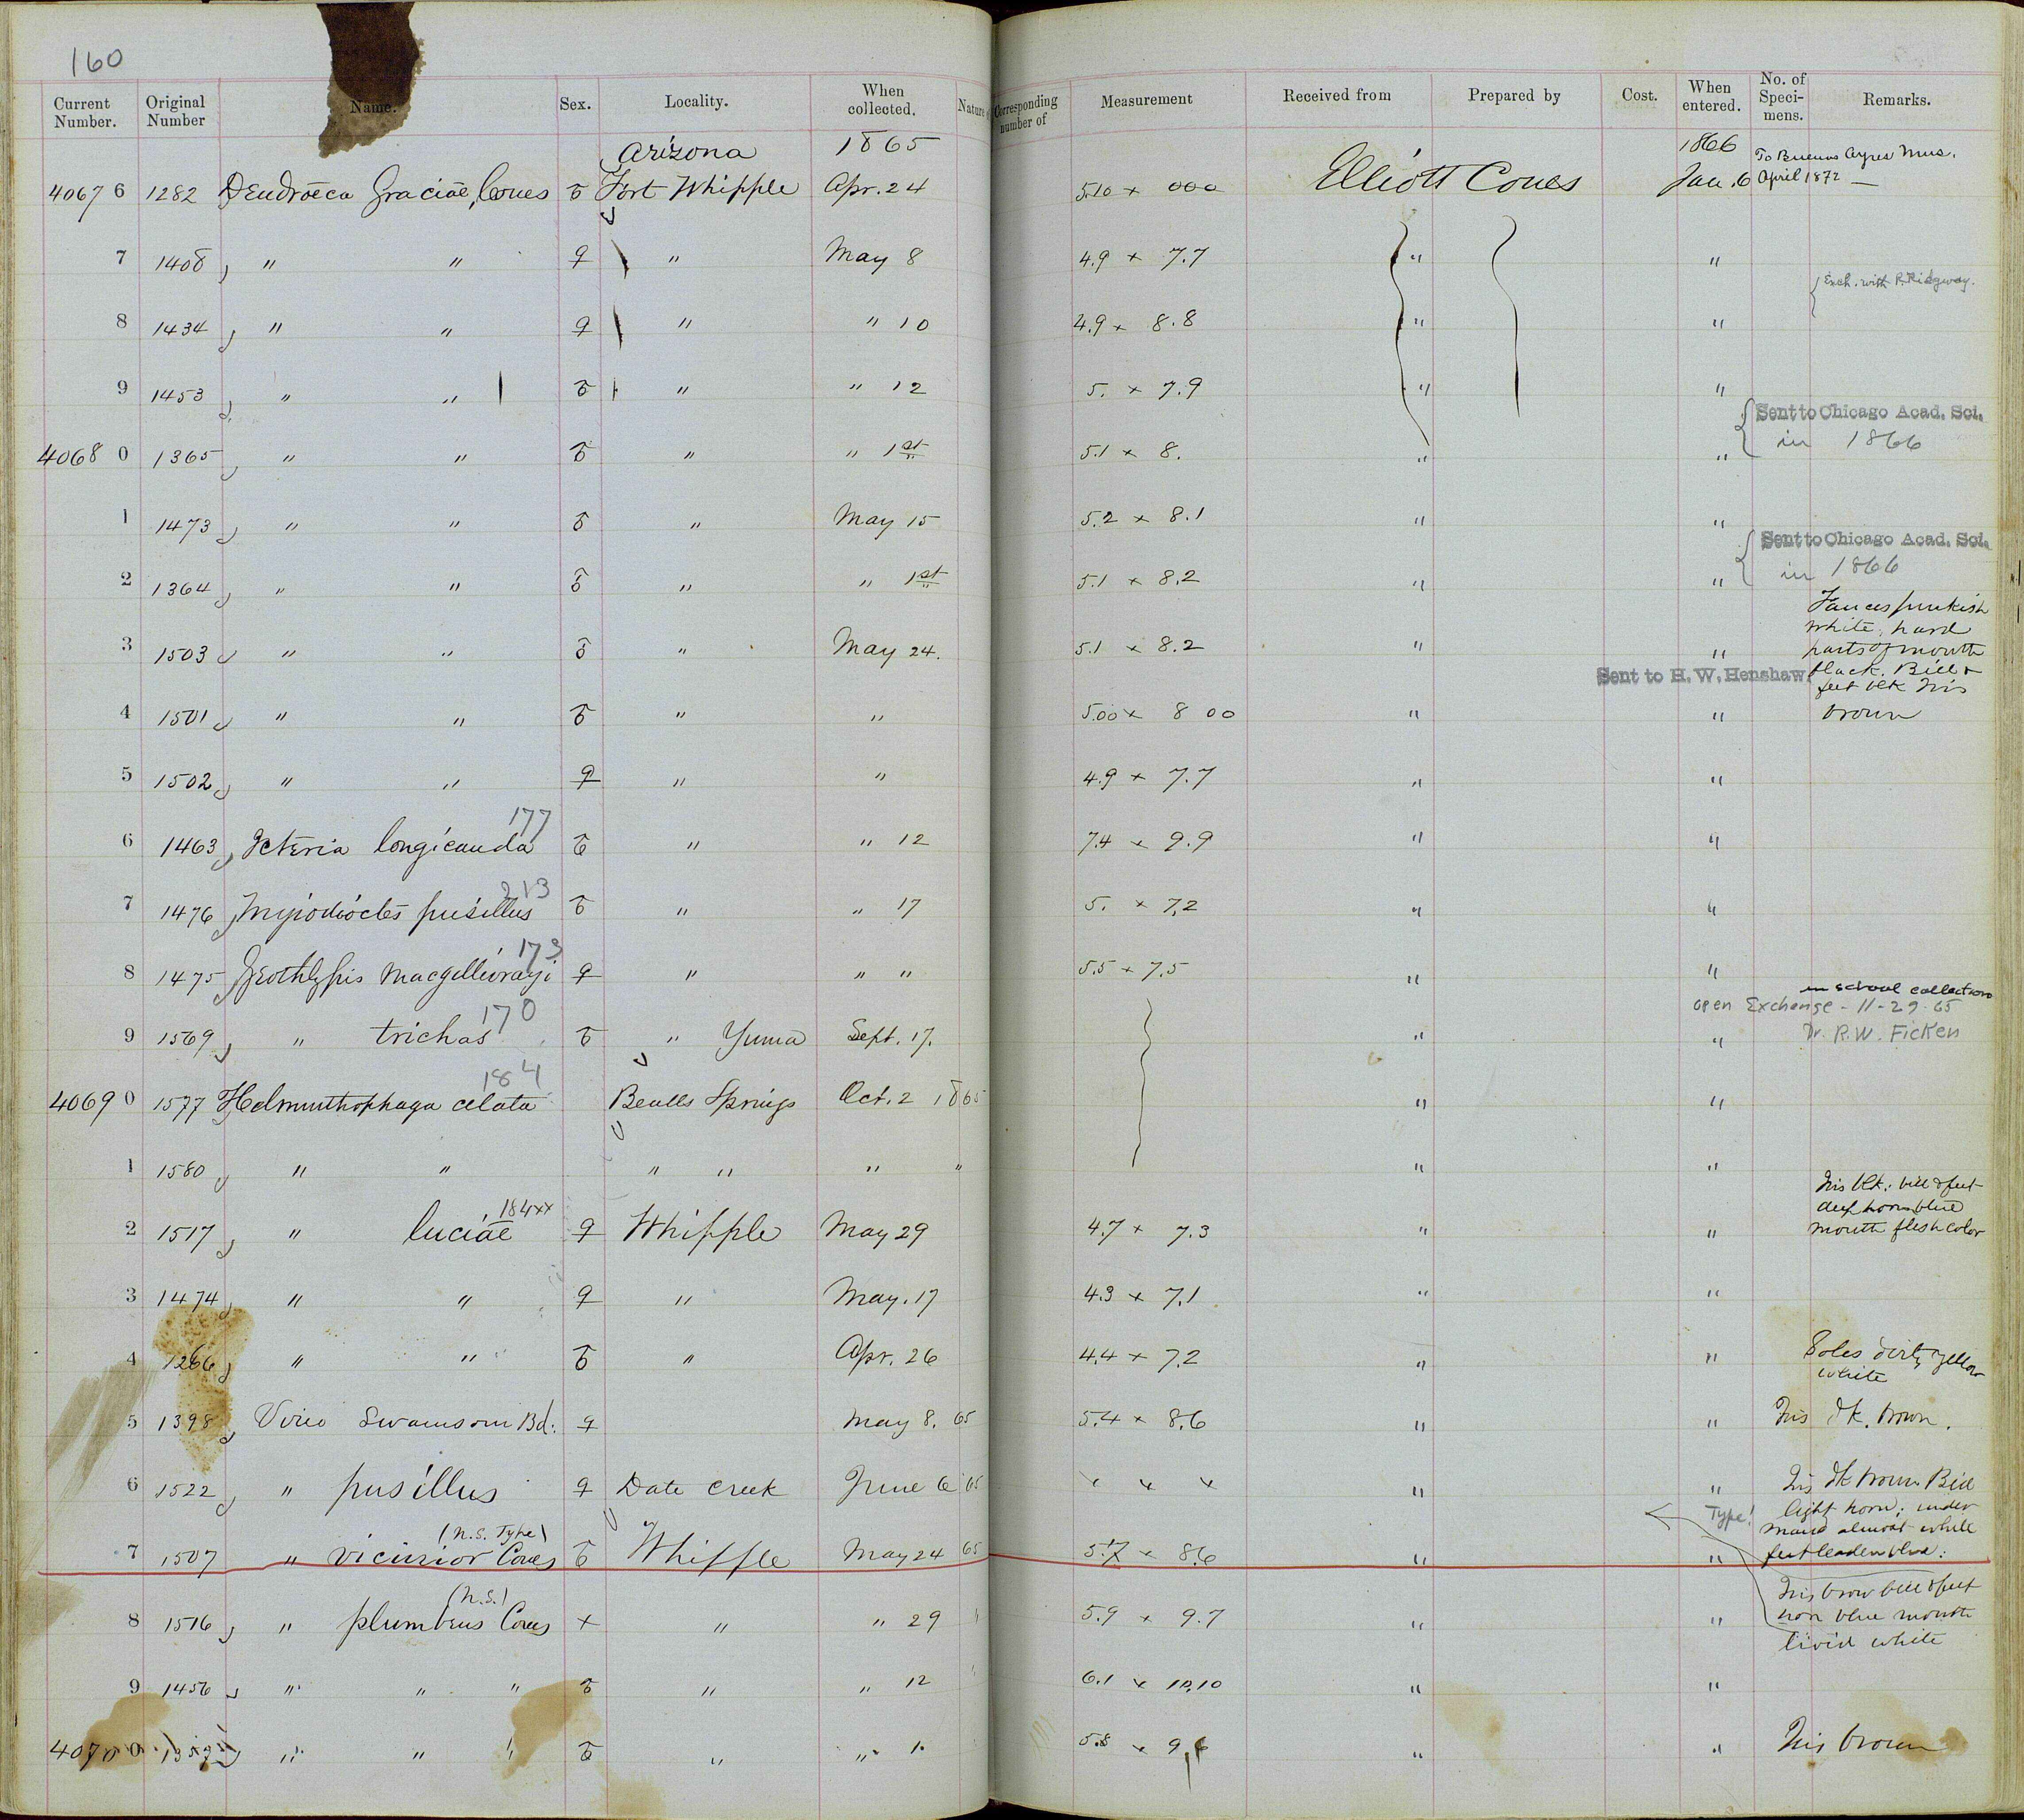 160
Current Number. Original Number Name. Sex. Locality. When collected. Nature Corresponding number of Measurement Received from Prepared by Cost. When entered. No. of Speci-mens. Remarks.
Arizona 1865 1866 To Buenos Ayres Mus.
4067 6 1282 Dendroeca Graciae, Coues ♂ Fort Whipple Apr. 24 5.10 × 000 Elliott Coues Jan. 6 April 1872 —
7 1408 " " ♀ " May 8 4.9 × 7.7 " "
Exch. with R. Ridgway.
8 1434 " " ♀ " " 10 4.9 × 8.8 " "
9 1453 " " ♂ " " 12 5. × 7.9 " "
Sent to Chicago Acad. Sci.
in 1866
4068 0 1365 " " ♂ " " 1st 5.1 × 8. " "
1 1473 " " ♂ " May 15 5.2 × 8.1 " "
Sent to Chicago Acad. Sci.
in 1866
2 1364 " " ♂ " " 1st 5.1 × 8.2 " "
Fauces pinkish
white; hard
3 1503 " " ♂ " May 24. 5.1 × 8.2 " " parts of mouth
Sent to H. W. Henshaw. black. Bill &
feet blk Iris
4 1501 " " ♂ " " 5.00 × 8 00 " " brown
5 1502 " " ♀ " " 4.9 × 7.7 " "
177
6 1463 Icteria longicauda ♂ " " 12 7.4 × 9.9 " "
213
7 1476 Myiodioctes pusillus ♂ " " 17 5. × 7.2 " "
173
8 1475 Geothlypis Macgillivrayi ♀ " " " 5.5 × 7.5 " "
in school collection
170 open Exchange - 11-29-65
9 1569 " trichas ♂ " Yuma Sept. 17. " " Dr. R.W. Ficken
184
4069 0 1577 Helminthophaga celata Bealls Springs Oct. 2 1865 " "
1 1580 " " " " " " " "
Iris blk: bill & feet
184xx deep horn blue
2 1517 " luciae ♀ Whipple May 29 4.7 × 7.3 " " mouth flesh color
3 1474 " " ♀ " May. 17 4.3 × 7.1 " "
4 1266 " " ♂ " Apr. 26 4.4 × 7.2 " " Soles dirty yellow
white
5 1398 Vireo Swainsoni Bd. ♀ May 8. 65 5.4 × 8.6 " " Iris dk. brown.
6 1522 " pusillus ♀ Date Creek June 6 65 " " " " " Iris dk brown. Bill
Type! light horn; under
(n.s. Type) mand almost white
7 1507 " vicinior Coues ♂ Whipple May 24 65 5.7 × 8.6 " " feet leaden blue:
(n.s.) Iris brow bill & feet
8 1516 " plumbeus Coues × " " 29 " 5.9 × 9.7 " " horn blue mouth
livid white
9 1456 " " " ♂ " " 12 " 6.1 × 10.10 " "
4070 0 " " " ♂ " " 1. 5.8 × " " Iris brown